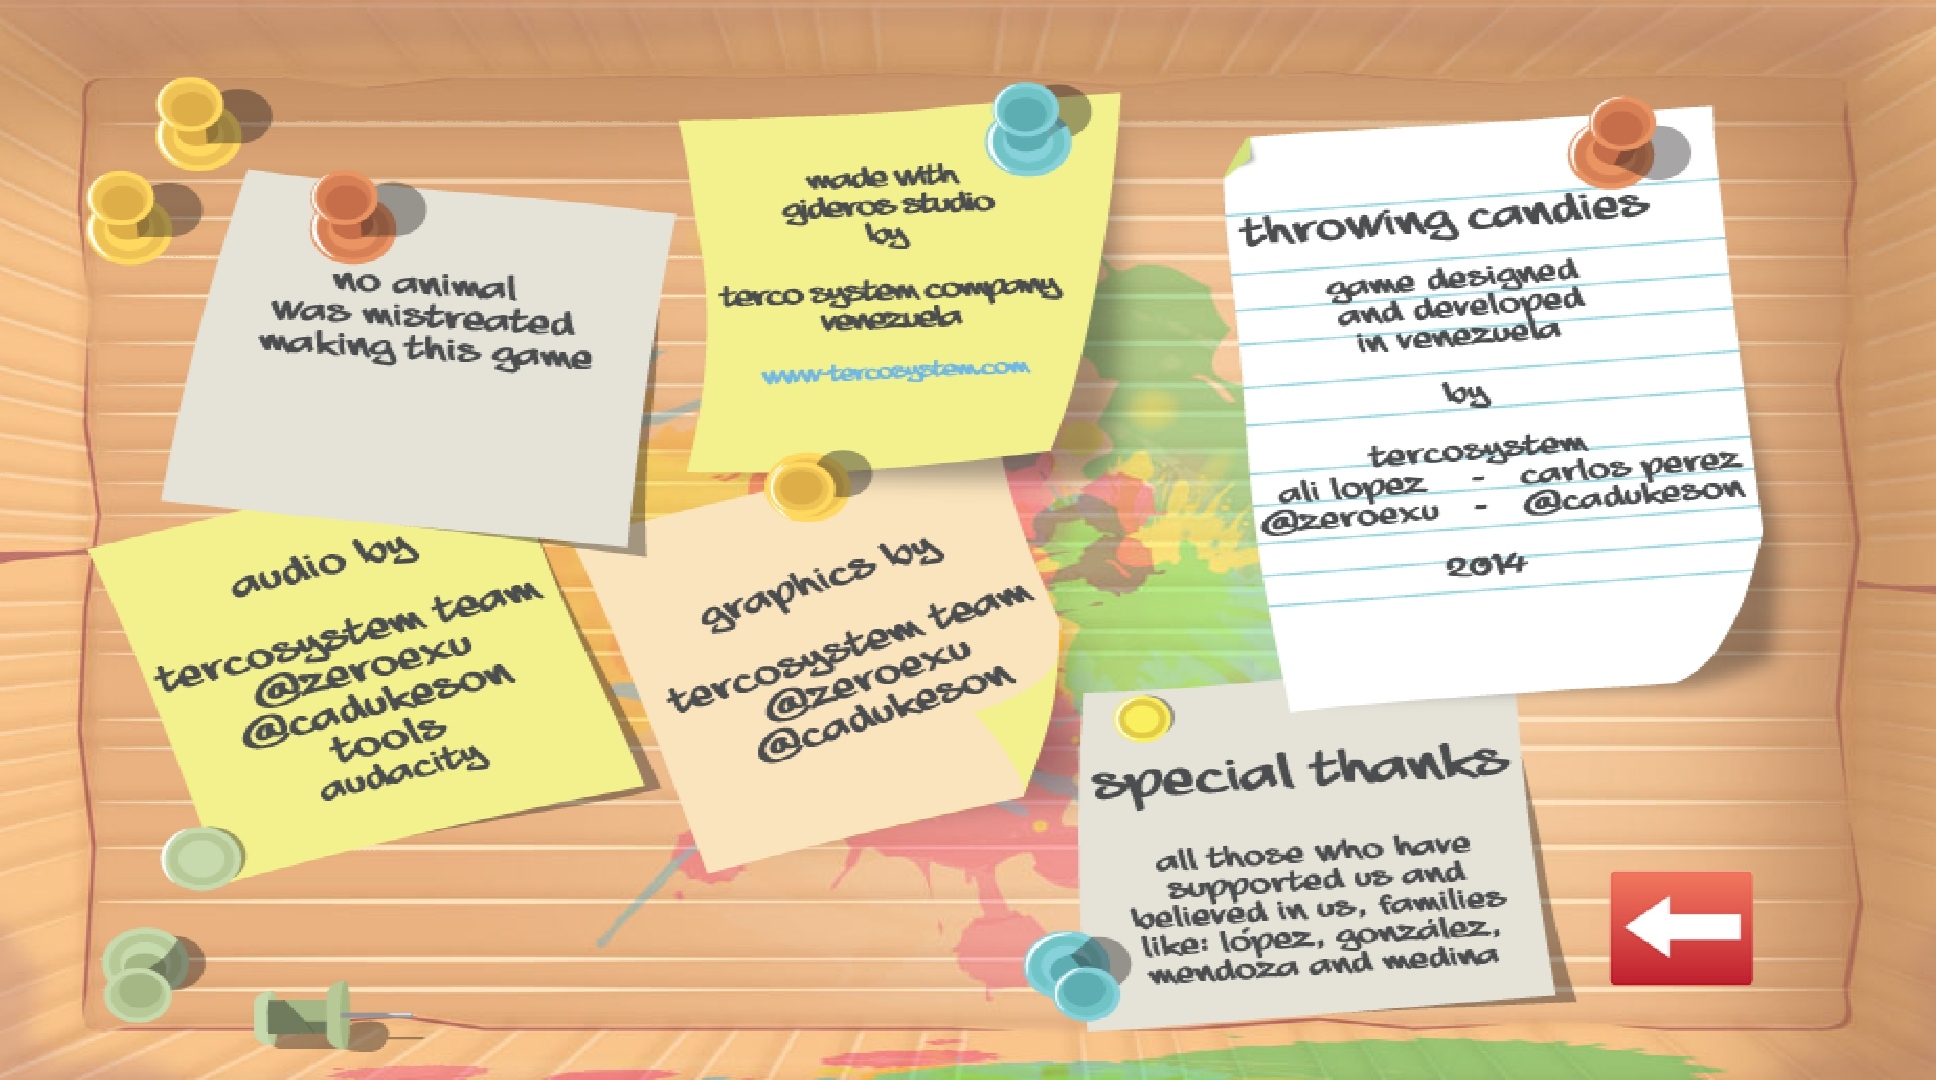 no animal
was mistreated
making this game
made with
gideros studio
by
terco system company
venezuela
www.tercosystem.com
throwing candies
game designed
and developed
in venezuela
by
tercosystem
ali lopez - carlos perez
@zeroexu - @cadukeson
2014
audio by
tercosystem team
@zeroexu
@cadukeson
tools
audacity
graphics by
tercosystem team
@zeroexu
@cadukeson
special thanks
all those who have
supported us and
believed in us, families
like: lópez, gonzález,
mendoza and medina